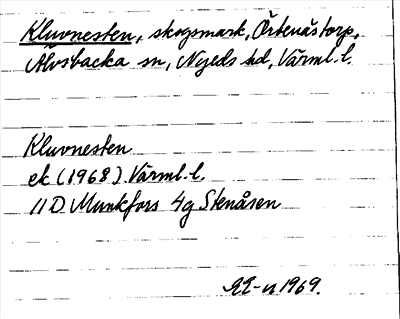 Kluvnesten, skogsmark, Örtenästorp,
Älvsbacka sn, Nyeds hd, Värml. l.
Kluvnesten
ek (1968) Värml. l.
11D Munkfors 4g Stenåsen
1969.